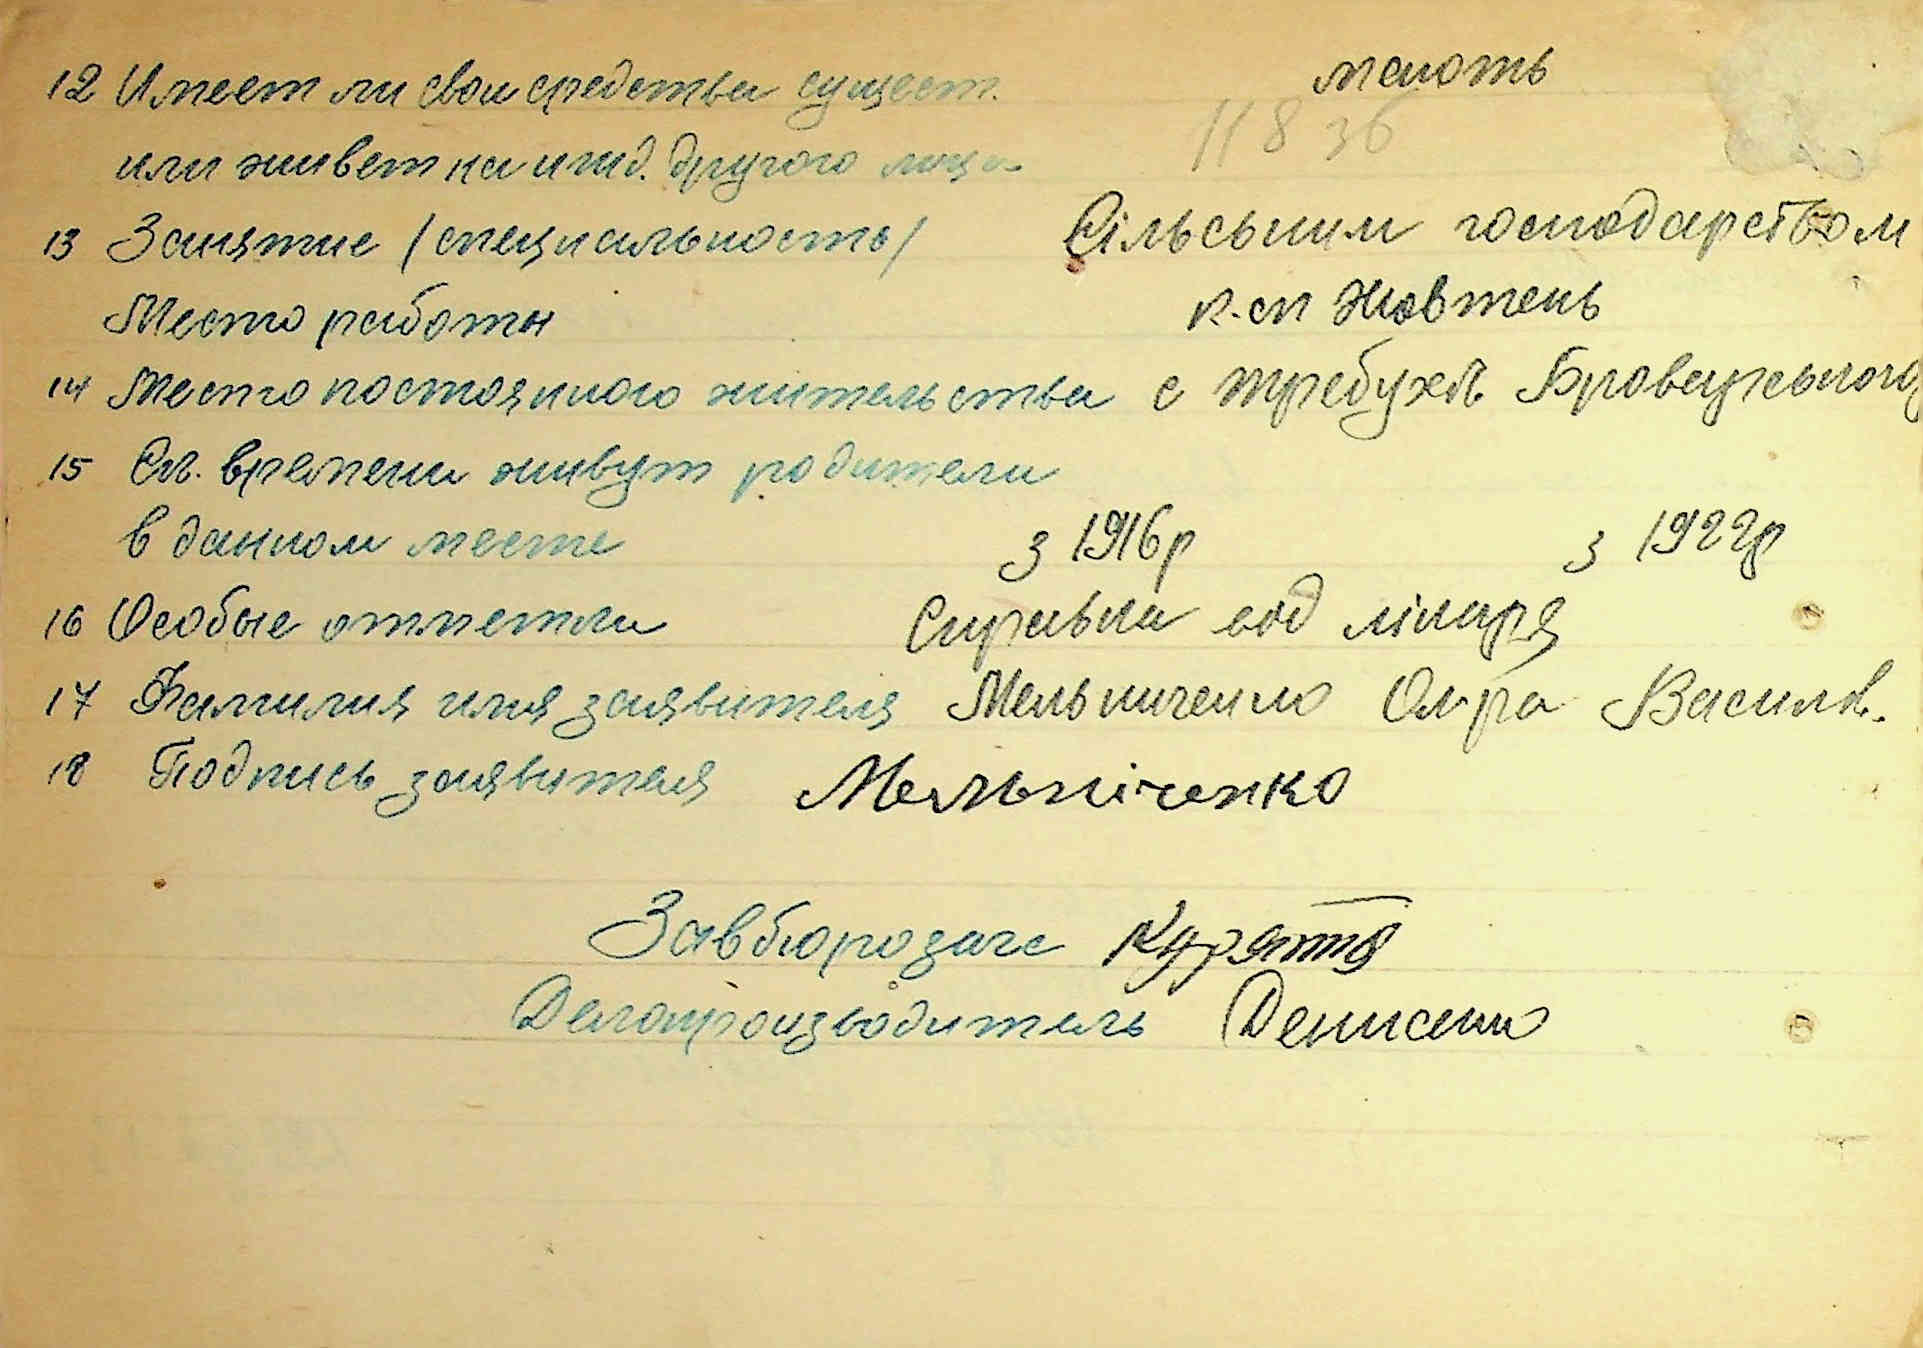 12 Имеет ли свои средства сущест. мають
или живет на ижд. другого лица 118 36
13 Занятие (специальность) Сільським господарством
Место работы к.сп Жовтень
14 Место постоянного жительства с Требухів Броварського
15 Ск. времени живут родители
в данном месте з 1916р з 1922р
16 Особые отметки Справка від лікаря
17 Фамилия имя заявителя Мельниченко Василів.
18 Подпись заявителя Мельніченко
Завбюрозагс
Делопроизводитель Денисенко